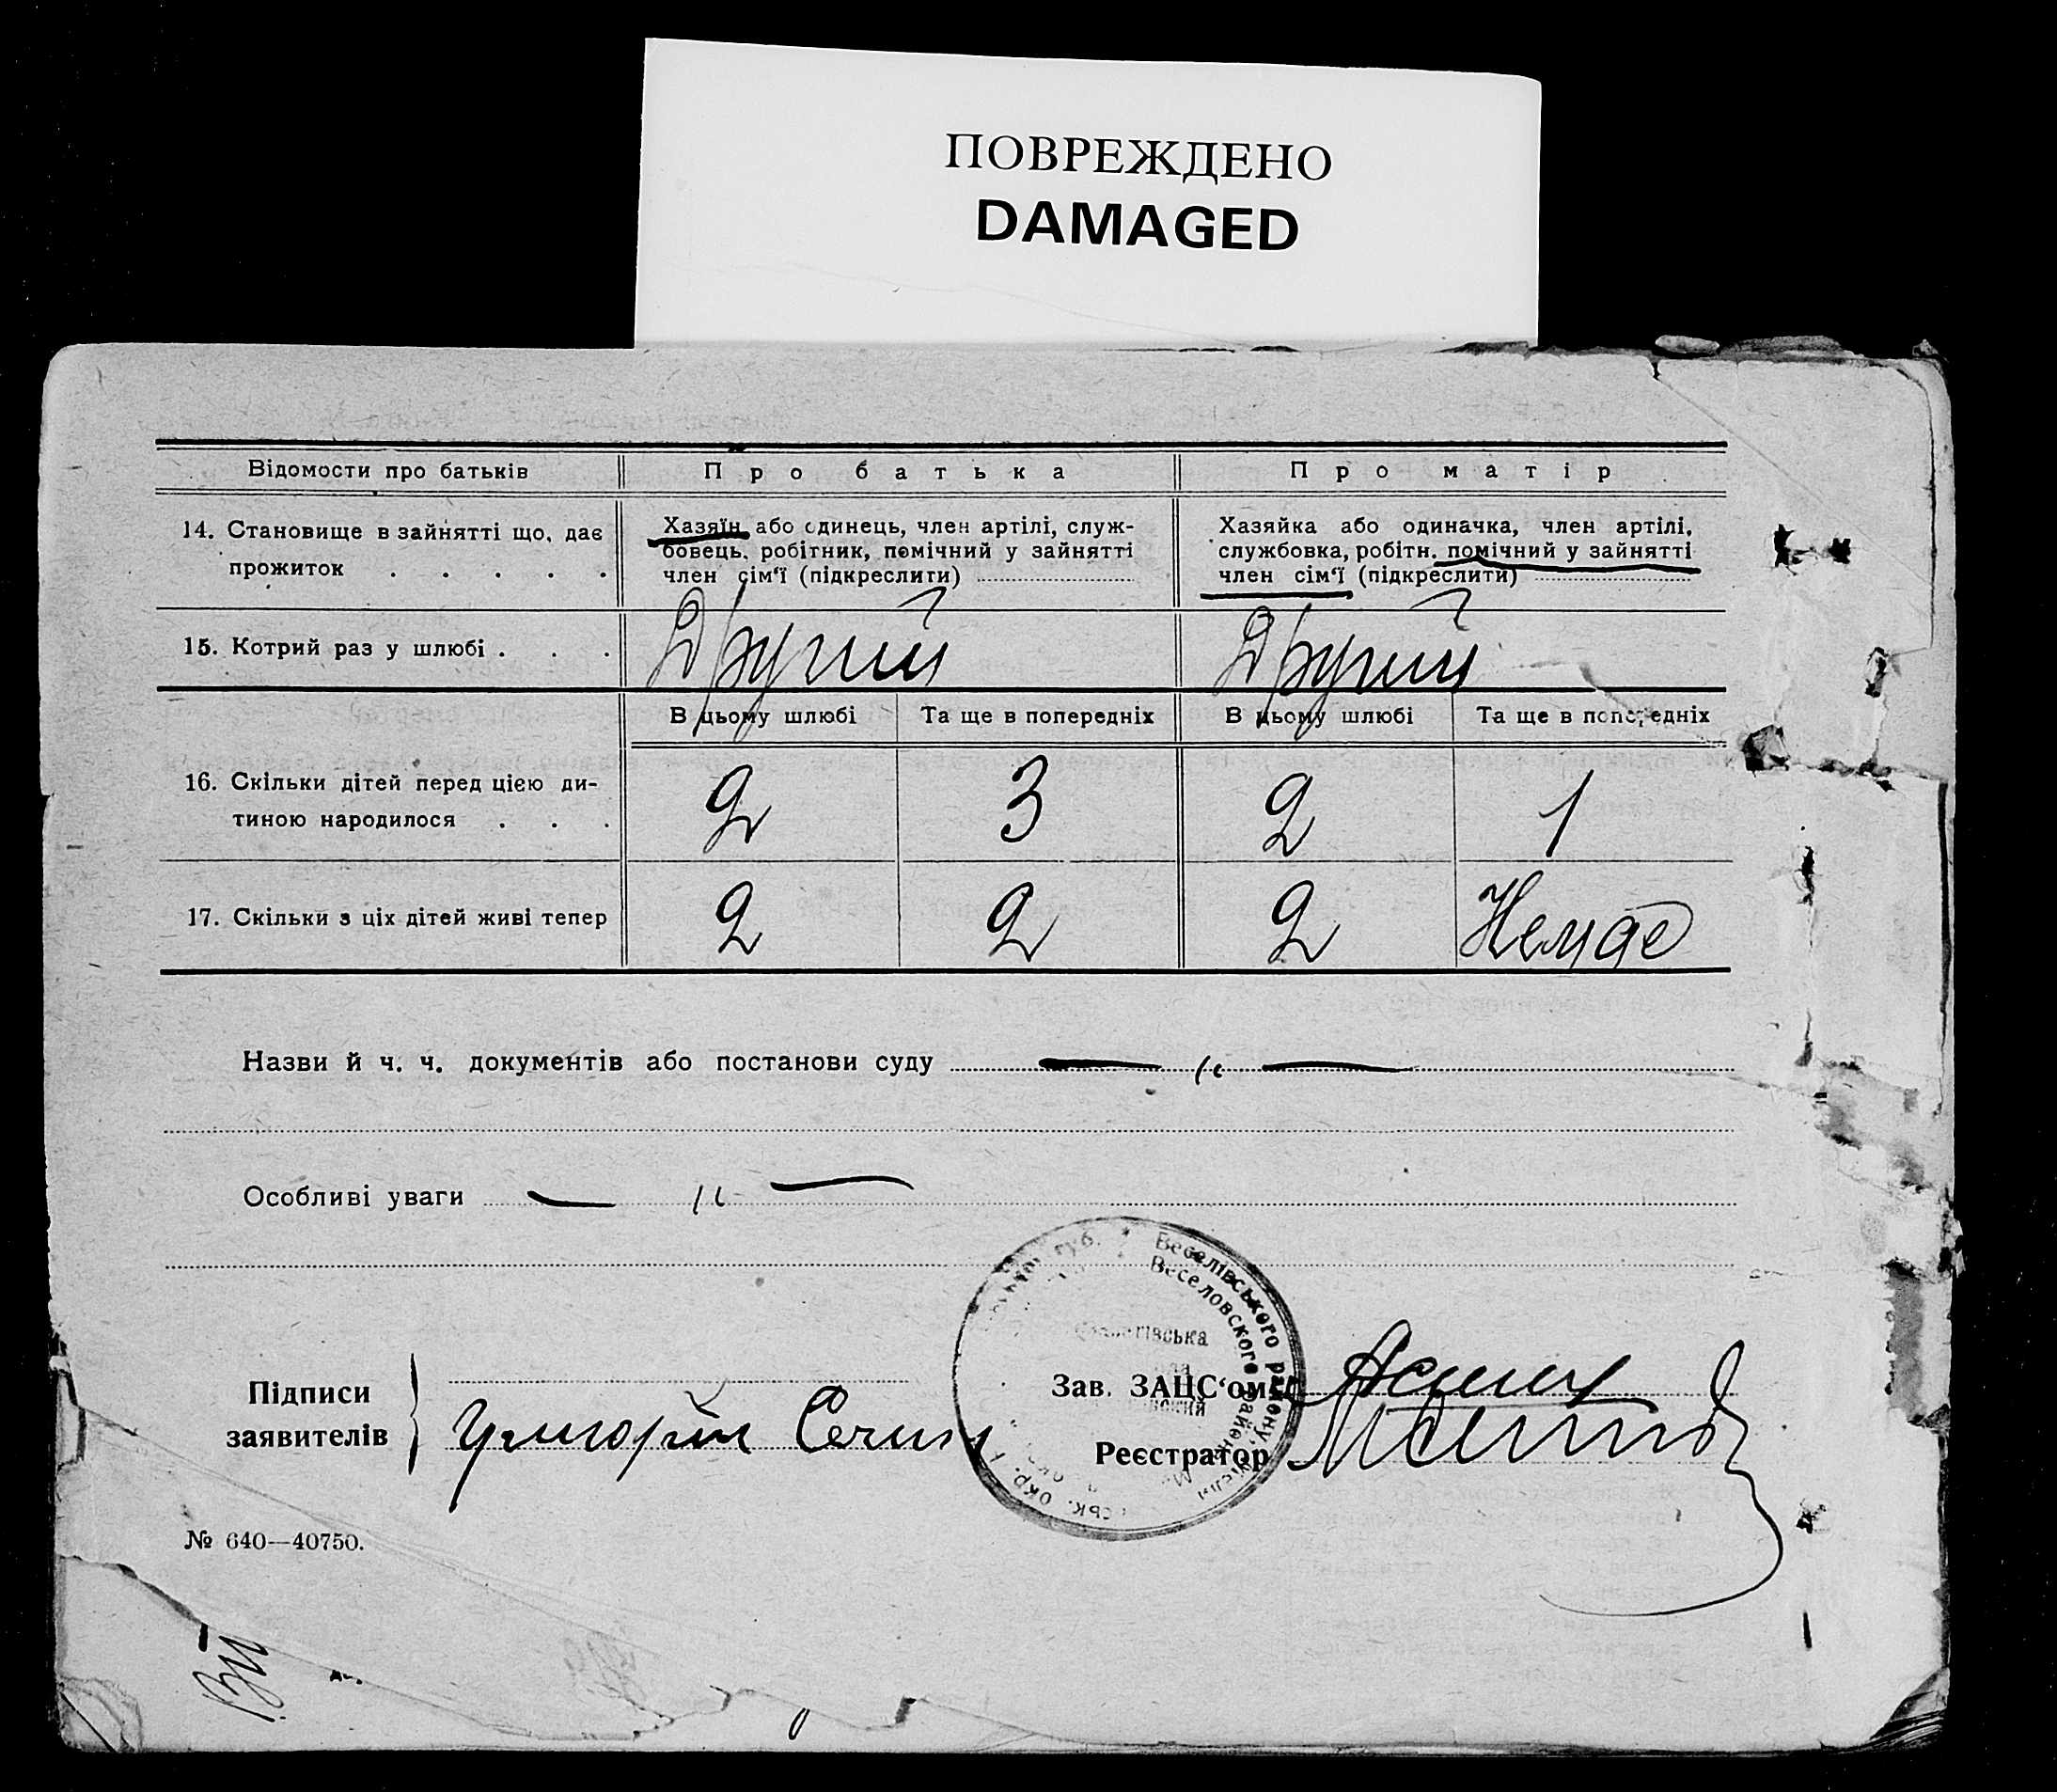 ПОВРЕЖДЕНО
DAMAGED
Відомости про батьків
Про батька
Про матір
14. Становище в зайнятті що, дає
прожиток . . . . .
Хазяїн або одинець, член артілі, служ-
бовець, робітник, помічний у зайнятті
член сім'ї (підкреслити)
Хазяйка або одиначка, член артілі,
службовка, робітн. помічний у зайнятті
член сім'ї (підкреслити)
15. Котрий раз у шлюбі . . .
Другий
Другий
В цьому шлюбі
Та ще в попередніх
В цьому шлюбі
Та ще в попередніх
16. Скільки дітей перед цією ди-
тиною народилося . . .
2
3
2
1
17. Скільки з ціх дітей живі тепер
2
2
2
Немає
Назви й ч. ч. документів або постанови суду — „ —
Особливі уваги — „ —
губ. * Веселівського району,
Веселовского
окр.
Підписи
заявителів
Зав. ЗАЦС'ом
Реєстратор
№ 640—40750.